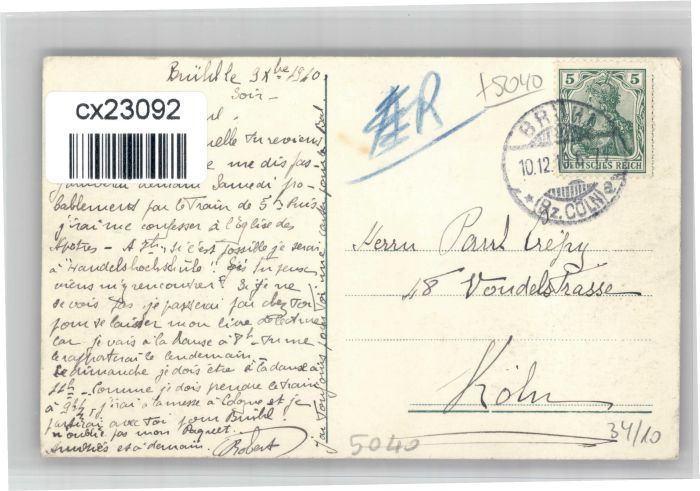 Brühl le 9 Xbre 1910
Soir -
cx23092
tu reviens
me dis pas -
demain Samedi pro-
bablement par le Train de 5h Puis
j'irai me confesser à l'église des
Apôtres - A si c'est possible je serai
à "Handelshochschule"
viens m'y rencontrer! Si je ne
te vois pas je passerai par chez toi
pour te laisser mon livre
car je vais à la danse à 8h - Tu me
le rapporteras le lendemain -
Le dimanche je dois être à la danse à
11h - Comme je dois prendre le train
à 9h½, j'irai à la messe à Cologne et je
partirai avec toi pour Brühl.
N'oublie pas mon Paquet.
Amitiés et à demain. Robert
j'ai toujours pour toi une carte pour le Bal.
R
+5040
5
5
DEUTSCHES REICH
BRÜHL
10.12.10
* (Bz. CÖLN) a
Herrn Paul Crépy
48 Vondelstrasse
Köln
5040
34/10